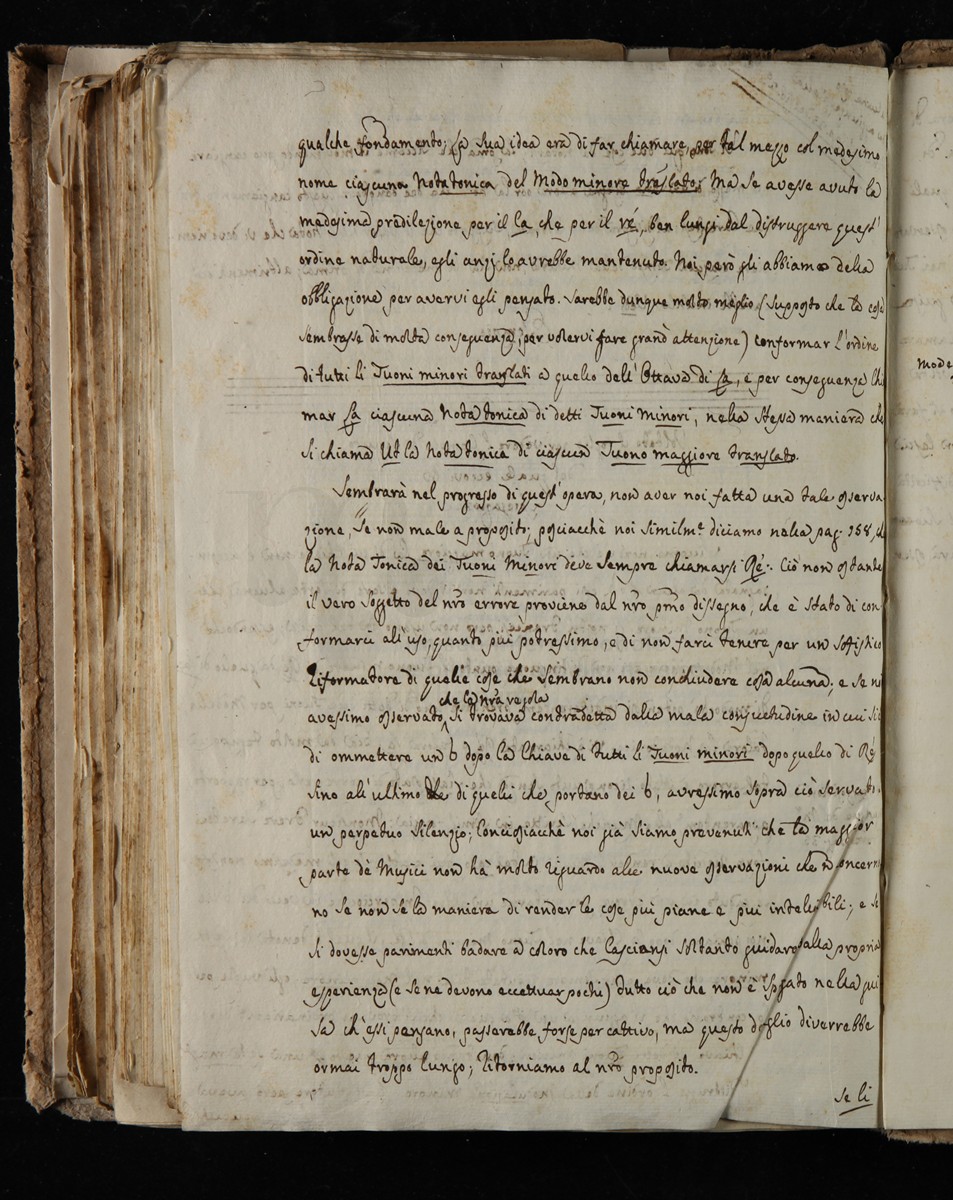 qualche fondamento; la sua idea era di far chiamare, per tal mezzo col medesimo
nome ciascuna Nota tonica del Modo minore traslato; Ma se avesse avuto la
medesima predilezione per il la, che per il ré, ben lungi dal distruggere quest'
ordine naturale, egli anzi lo avrebbe mantenuto. Noi però gli abbiamo della
obbligazione per avervi egli pensato. Sarebbe dunque molto meglio (supposto che la cosa
sembrasse di molta conseguenza, per volervi fare grand'attenzione) conformar l'ordine
di tutti li Tuoni minori traslati a quello dell'Ottava di la, e per conseguenza chi
mar la ciascuna Nota tonica di detti Tuoni Minori, nella stessa maniera che
si chiama Ut la Nota tonica di ciascun Tuono maggiore traslato.
Sembrarà nel progresso di quest'opera, non aver noi fatta una tale osserva
zione, se non male a proposito; posciacchè noi similm.e diciamo nella pag. 158,
la Nota Tonica dei Tuoni Minori deve sempre chiamarsi Ré. Ciò non ostante
il vero soggetto del nr̃o errore proviene dal nr̃o pm̃o dissegno, che è stato di con
formarci all'uso, quanto più potressimo, e di non farci tenere per un sofistico
Riformatore di quelle cose che sembrano non conchiudere cosa alcuna; e se no
avessimo osservato che la nr̃a regola si trovava contradetta dalla mala consuetudine in cui si è
di ommettere un b dopo la Chiave di tutti li Tuoni minori dopo quello di Ré
sino all'ultimo di quelli che portano dei b, avressimo sopra ciò servato
un perpetuo silenzio; Conciosiacchè noi già siamo prevenuti che la maggior
parte dè Musici non hà molto riguardo alle nuove osservazioni che concerno
no se non se la maniera di render le cose più piane e più intelligibili; e se
si dovesse parimenti badare a coloro che lasciansi soltanto guidare dalla propria
esperienza (e se ne devono eccettuar pochi) tutto ciò che non è spiegato nella gui
sa ch'essi pensano, passerebbe forse per cattivo, ma questo doglio diverrebbe
ormai troppo lungo; Ritorniamo al nr̃o proposito.
se li
mode